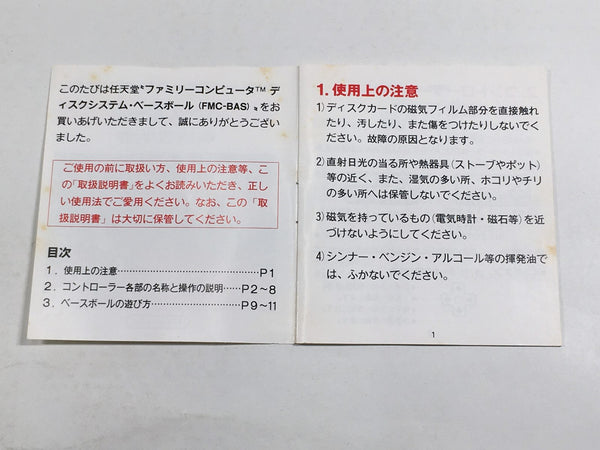 このたびは任天堂〝ファミリーコンピュータ™ デ
ィスクシステム・ベースボール (FMC-BAS)〟をお
買いあげいただきまして、誠にありがとうござい
ました。
ご使用の前に取扱い方、使用上の注意等、こ
の「取扱説明書」をよくお読みいただき、正し
い使用法でご愛用ください。なお、この「取
扱説明書」は大切に保管してください。
目次
1. 使用上の注意……………………………………P1
2. コントローラー各部の名称と操作の説明……P2〜8
3. ベースボールの遊び方…………………………P9〜11
1. 使用上の注意
1)ディスクカードの磁気フィルム部分を直接触れ
たり、汚したり、また傷をつけたりしないでく
ださい。故障の原因となります。
2)直射日光の当る所や熱器具(ストーブやポット)
等の近く、また、湿気の多い所、ホコリやチリ
の多い所へは保管しないでください。
3)磁気を持っているもの(電気時計・磁石等)を近
づけないようにしてください。
4)シンナー・ベンジン・アルコール等の揮発油で
は、ふかないでください。
1